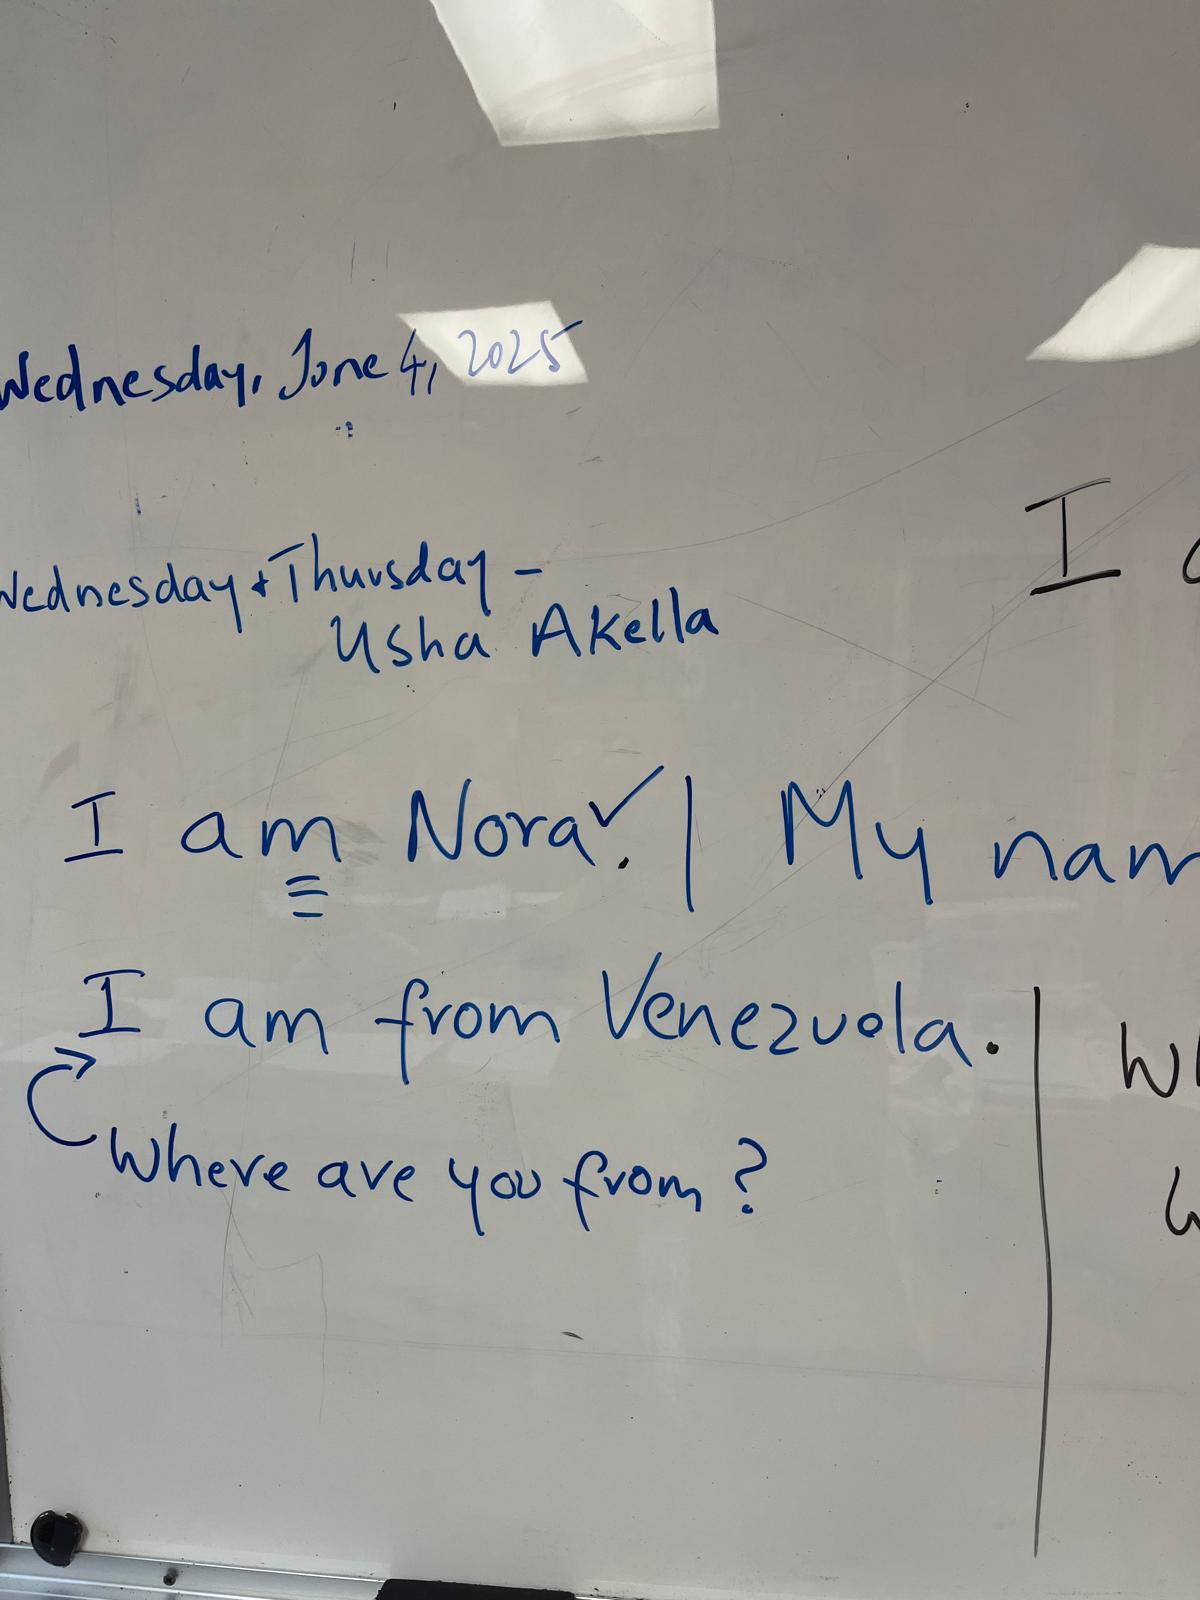 Wednesday, June 4, 2025
Wednesday + Thursday -
Usha Akella
I
I am Nora✓. | My nam
I am from Venezuela.
Wh
Where are you from?